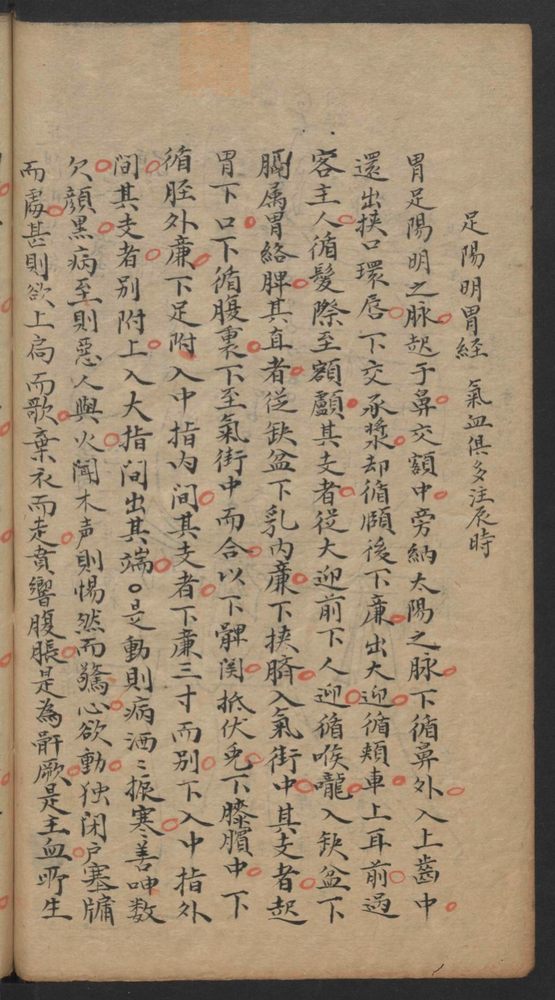 足陽明胃經 氣血俱多注辰時
胃足陽明之脉起于鼻交額中旁納太陽之脉下循鼻外入上齒中
還出挟口環唇下交承漿却循頤後下廉出大迎循頰車上耳前過
客主人循髮際至額顱其支者從大迎前下人迎循喉嚨入缺盆下
膈属胃絡脾其直者從缺盆下乳內廉下挾臍入氣街中其支者起
胃下口下循腹裏下至氣街中而合以下髀関抵伏兎下膝臏中下
循胫外廉下足附入中指内間其支者下廉三寸而别下入中指外
間其支者別附上入大指间出其端○是動則病洒〻振寒善呻数
欠顔黑病至則惡人與火闻木声則惕然而驚心欲動独闭户塞牖
而處甚則欲上高而歌棄衣而走賁響腹脹是為骭厥是主血所生